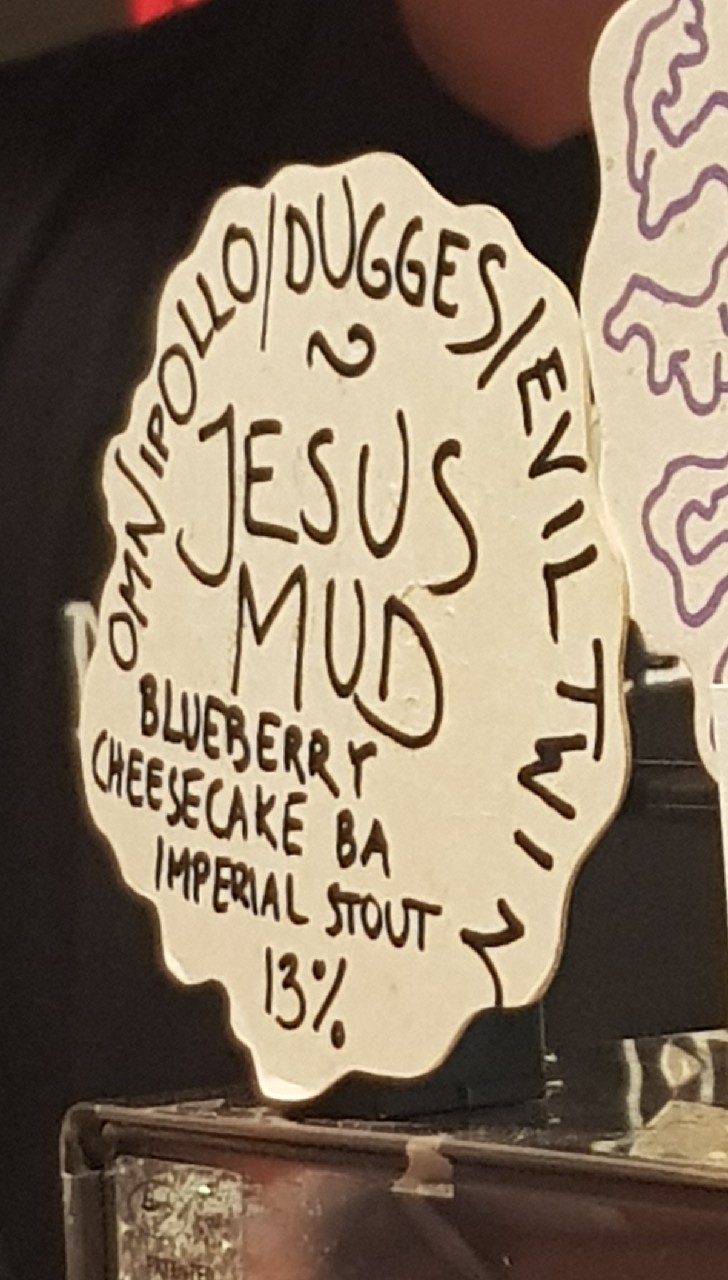 OMNIPOLLO/DUGGES/EVIL TWIN
JESUS
MUD
BLUEBERRY
CHEESECAKE BA
IMPERIAL STOUT
13%
PATENTED